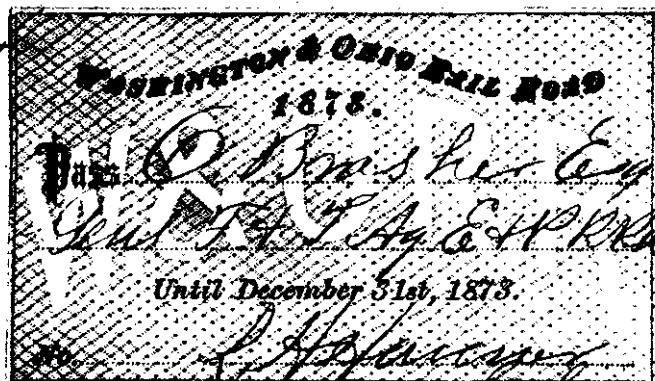 WASHINGTON & OHIO RAIL ROAD
1873.
Pass O. Brasher Esq
Genl F & T Ag E & P RR
Until December 31st, 1873.
No.